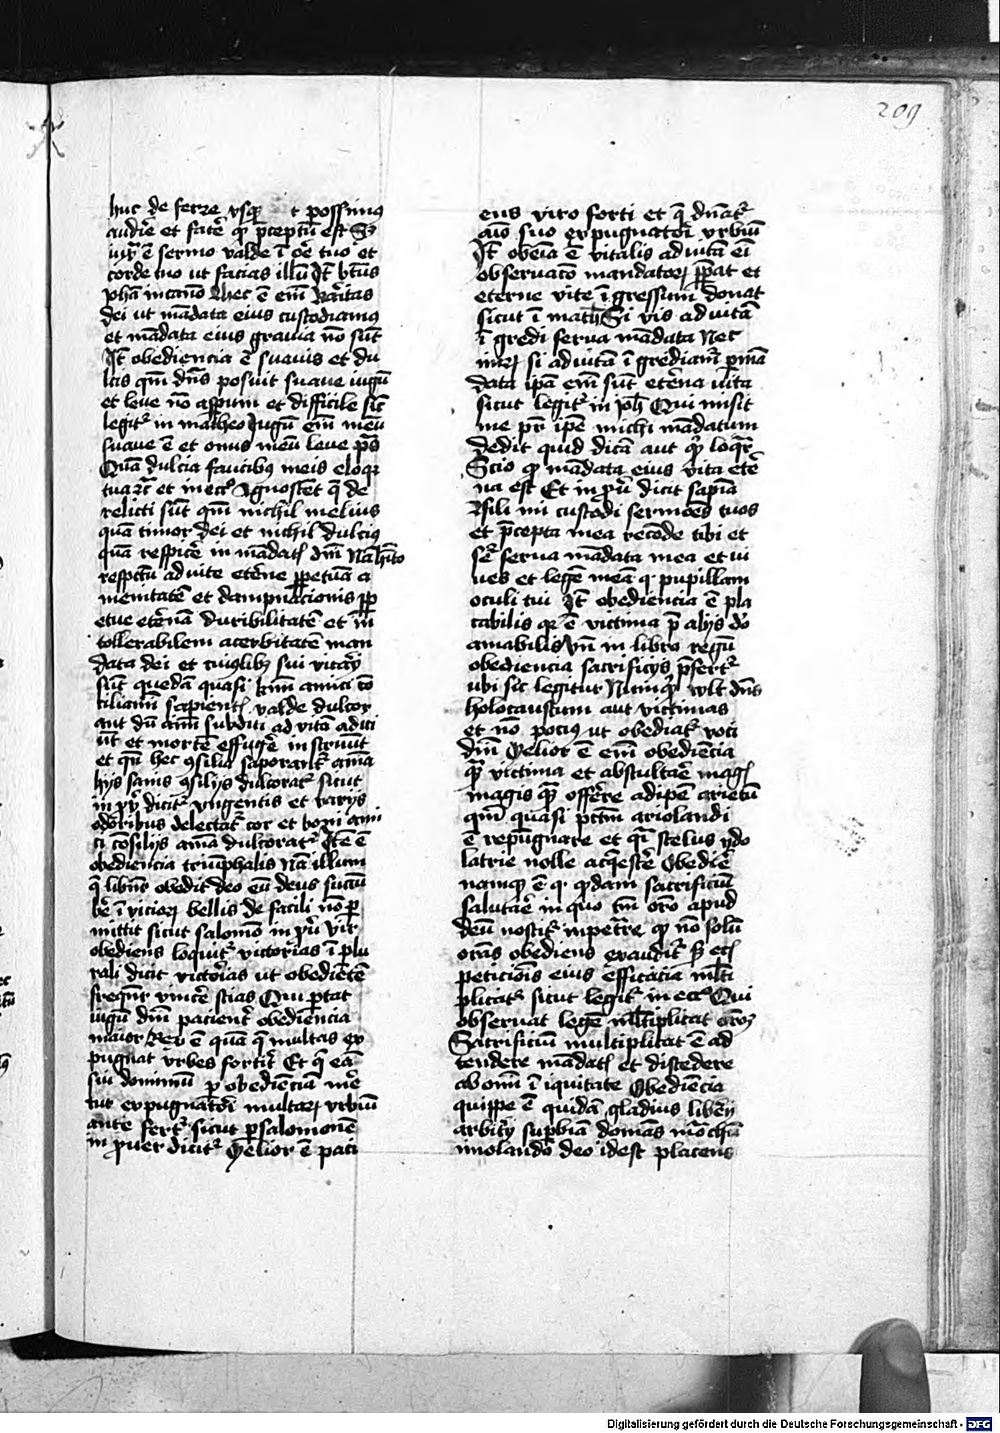 209
huc de ferre usq t possimus
audire et facere q̄ p̄ceptū est S
iuxͣ ē sermo valde ī ore tuo et
corde tuo ut facias illū Itē btūs
Joh̄ in canō hec ē em̄ karitas
dei ut mādata eius custodiamus
et mādata eius gravia nō sūt
Itē obediencia ē suavis et du
lcis qm̄ dn̄s posuit suave iugū
et leve nō asperum et difficile sic̄
legit in matheo Iugū em̄ meū
suave ē et onus meū leve p̄s
Quā dulcia faucibus meis eloq
tua et in ecc̄ Agnoscet q̄ de
relicti sūt qm̄ nichil melius
quā timor dei et nichil dulcius
quā respicē in mādat dn̄i Nā hito
respectu ad vite eterne ꝑpetuā a
menitatē et dampnacionis ꝑp
etue eternā duribilitatē et in
tollerabilem acerbitatē man
data dei et cuiuslibꝫ sui vicarij
sūt quedā quasi amici cō
ciliarij sapient valde dulcor
ant dū aīe subditi ad vitā adici
unt et mortē effugē instruūt
et qn̄ hec ꝯsilia saporant aīa
hijs sanis ꝯsilijs dulcorat sicut
in ꝓū dicit ungentis et varijs
odoribus delectat cor et boni ami
ci cōsilijs aīma dulcorat Itē ē
obediencia triūphalis Nā illum
q̄ libent obedit deo eū deus sucū
bē ī vicioꝝ bellis de facili nō ꝑ
mittit sicut salomō in ꝓū vir
obediens loquit victorias ī plu
rali dicit victorias ut obedietē
frequēt vincē scias Qui portat
iugū dn̄i pacient obediencia
maior Rex ē quā q̄ multas ex
pugnat urbes fortit Et q̄ eā
sui dominū ꝑ obedienciā
tur expugnatori multaꝝ urbiū
ante fert sicut ꝑ salomonē
in ꝓuer dicit Melior ē paci
ens viro forti et q̄ dn̄at
aīo suo expugnatori urbiū
Itē obēcia ē vitalis ad vitā em̄
observacō mandatoꝝ ꝑpat et
eterne vite ingressum donat
sicut ī math Si vis ad vitā
ingredi serva mādata Nec
miꝝ si ad vitā ī grediam̄ ꝑ mā
data ipā em̄ sūt eterna vita
sicut legit in Joh̄ Qui misit
me pr̄ ip̄e michi mādatum
dedit quid dicā aut qd loqr
Scio qꝫ mādata eius vita etē
na est Et in ꝓū dicit sapīa
fili mi custodi sermōes tuos
et p̄cepta mea recōde tibi et
serva mādata mea et vi
ves et legē meā q pupillam
oculi tui Itē obediencia ē pla
cabilis qꝛ ē victima p̄ alijs do
amabilis Vn̄ in libro regū
obediencia sacrificijs p̄fert
ubi sic legitur Nunquid vult dn̄s
holocaustum aut victimas
et nō pocius ut obediat voci
dn̄i Melior ē em̄ obediēcia
qꝫ victima et abscultaē mag
magis qꝫ offerre adipē arietū
qm̄ quasi pctm̄ ariolandi
ē repugnare et qī scelus ydo
latrie nolle acqescē Obediē
namqꝫ ē q qdam sacrificiū
salutaē in quo tm̄ orō apud
deū nostr inpetrare qꝫ nō solū
orās obediens exaudit sꝫ eciā
peticiōis eius efficacia mlti
plicat sicut legit in ecc̄ Qui
observat legē multiplicat orōꝫ
Sacrificiū multiplicat ē ad
tendere mādat et discedere
ab omi ī iquitate Obediēcia
quippe ē quidā gladius liberi
arbitrij supbiā domās
imolando deo idest placens
Digitalisierung gefördert durch die Deutsche Forschungsgemeinschaft - DFG